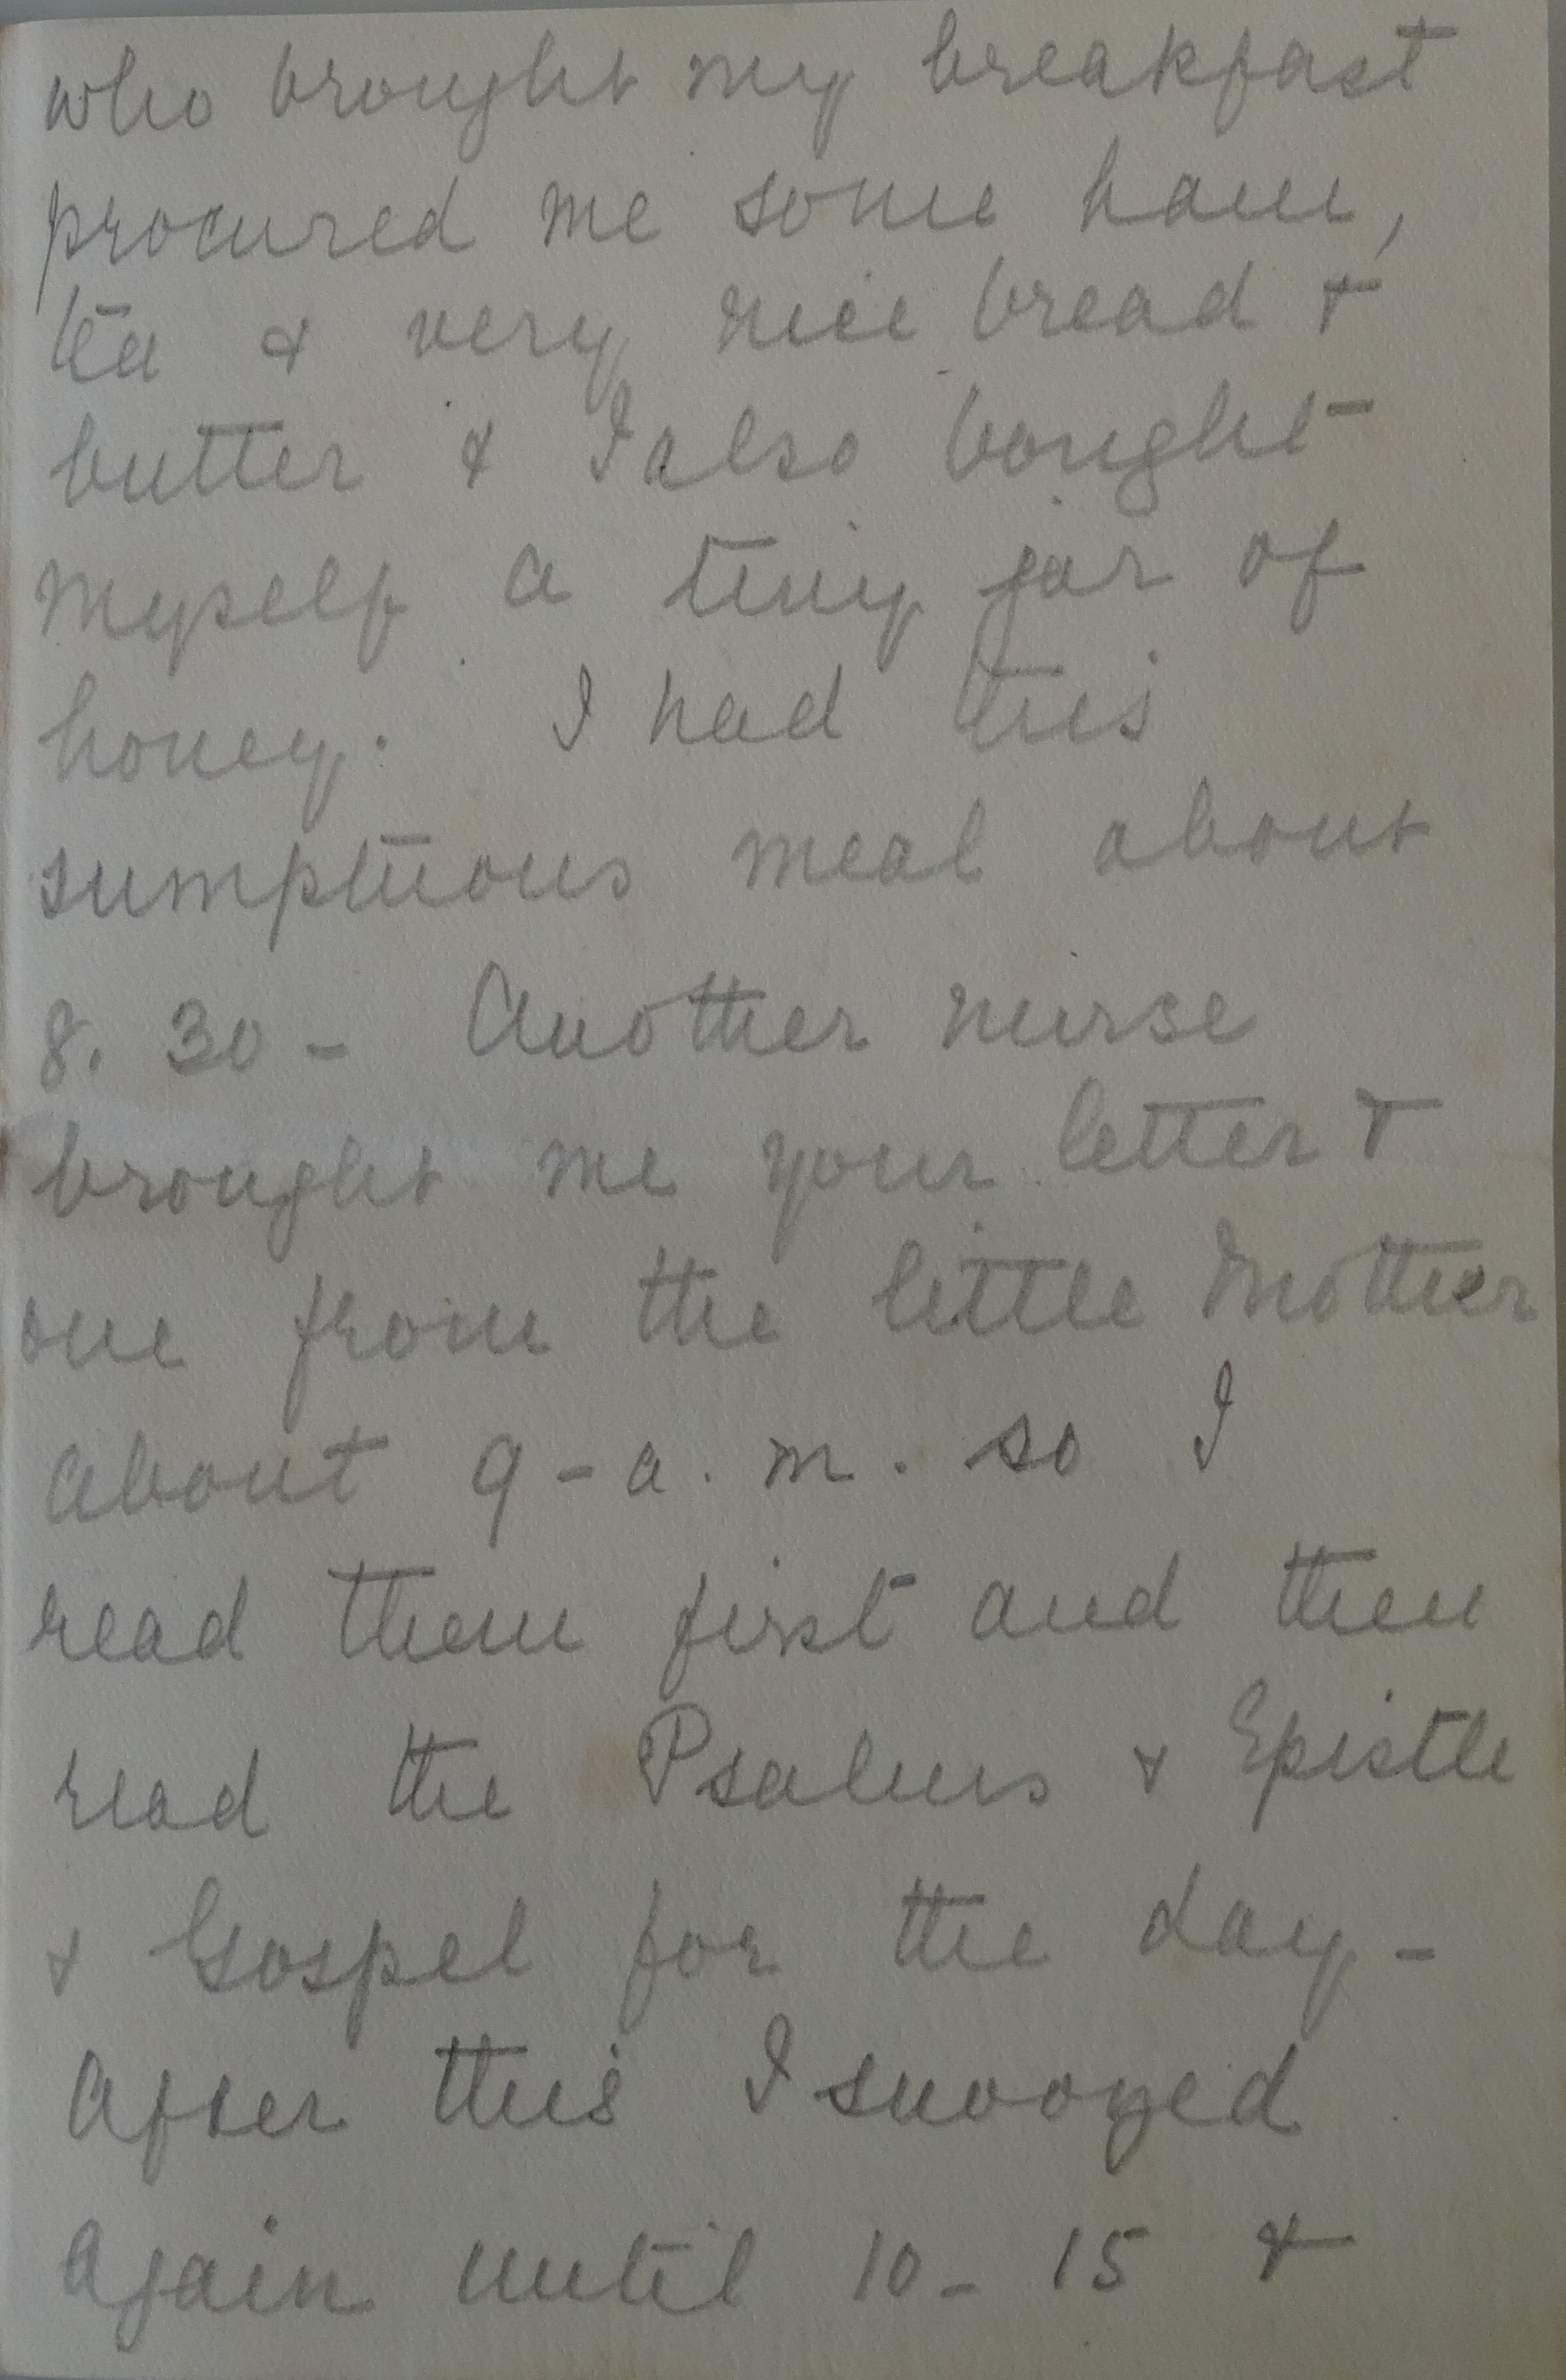 who brought my breakfast
procured me some ham,
tea & very nice bread &
butter & I also bought
myself a tiny jar of
honey. I had this
sumptuous meal about
8. 30 - Another nurse
brought me your letter &
one from the little Mother
about 9 - a. m. so I
read them first and then
read the Psalms & Epistle
& Gospel for the day -
After this I snoozed
again until 10 - 15 &